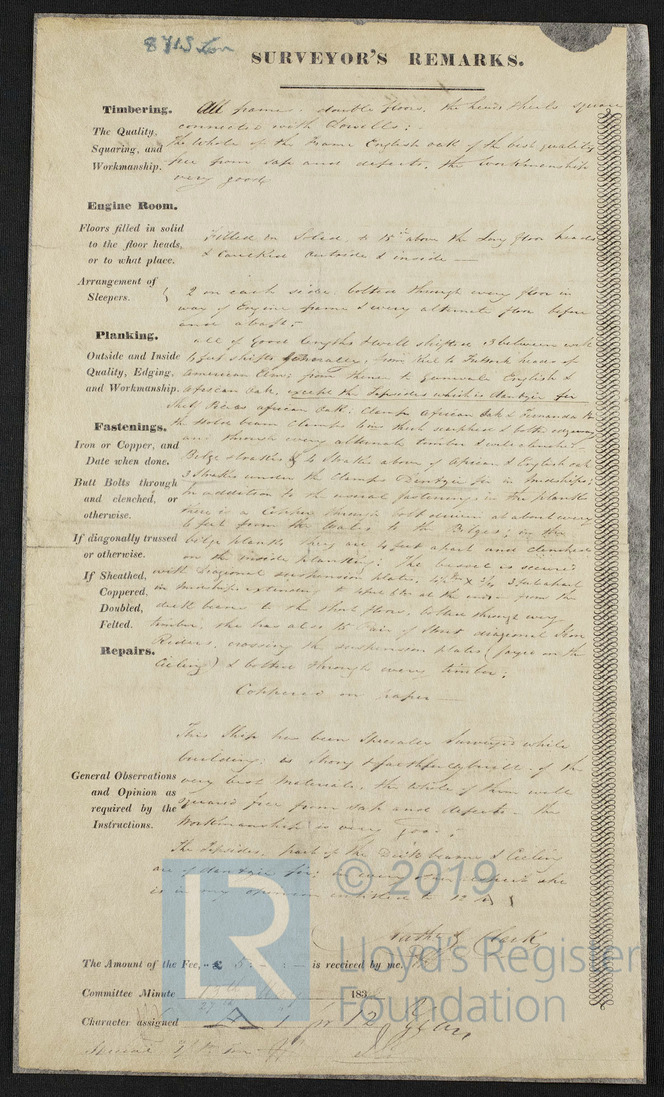 8715 Ton
SURVEYOR'S REMARKS.
Timbering.
The Quality,
Squaring, and
Workmanship.
All frame. double floors. the heads & heels square
connected with dowells;
The whole of the Frame English oak of the best quality
free from sap and defects. the workmanship
very good
Engine Room.
Floors filled in solid
to the floor heads,
or to what place.
Filled in Solid to 15 in above the long floor heads
& Caulked outside & inside
Arrangement of
Sleepers.
2 on each side. bolted through every floor in
way of Engine frame & every alternate floor before
and abaft.
Planking.
Outside and Inside
Quality, Edging,
and Workmanship.
all of good lengths & well shifted 3 between with
6 feet shifts generally, from Keel to Futtock heads of
American Elm; from thence to gunwale English &
African Oak, except the Topsides which is dantzic fir
Shelf Pieces african Oak. Clamps African Oak &
and through every alternate timber & well clenched
Fastenings.
Iron or Copper, and
Date when done.
Butt Bolts through
and clenched, or
otherwise.
Bilge strakes & to Strakes above of African & English oak
3 Strakes under the Clamps Dantzic fir in midships;
In addition to the usual fastenings in the planks
there is a Copper through bolt driven at about every
4 feet from the Wales to the Bilges; in the
If diagonally trussed
or otherwise.
bilge planks they are 4 feet apart and clenched
on the inside planking; The vessel is secured
If Sheathed,
Coppered,
Doubled,
Felted.
with Diagonal suspension plates, 3 feet apart
in midships extending to at the ends from the
deck beams to the short floors, bolted through every
timber, she has also 15 Pair of Short diagonal Iron
Repairs.
Riders, crossing the suspension plates on the
Ceiling) & bolted through every timber;
Coppered on paper
General Observations
and Opinion as
required by the
Instructions.
This Ship has been Specially Surveyed while
building; is strong & faithfully built of the
very best Materials, the whole of them well
squared free from sap and defects. the
Workmanship is very good;
The Topsides, part of the Deck beams & Ceiling
are of dantzic fir; in every other respect she
is in my opinion entitled to 12 A 1
Nathl Clark
The Amount of the Fee,
£ 5 : - : -
is received by me.
Committee Minute
183
Character assigned
A 1 for 12 Years
LR
© 2019
Lloyd's Register
Foundation